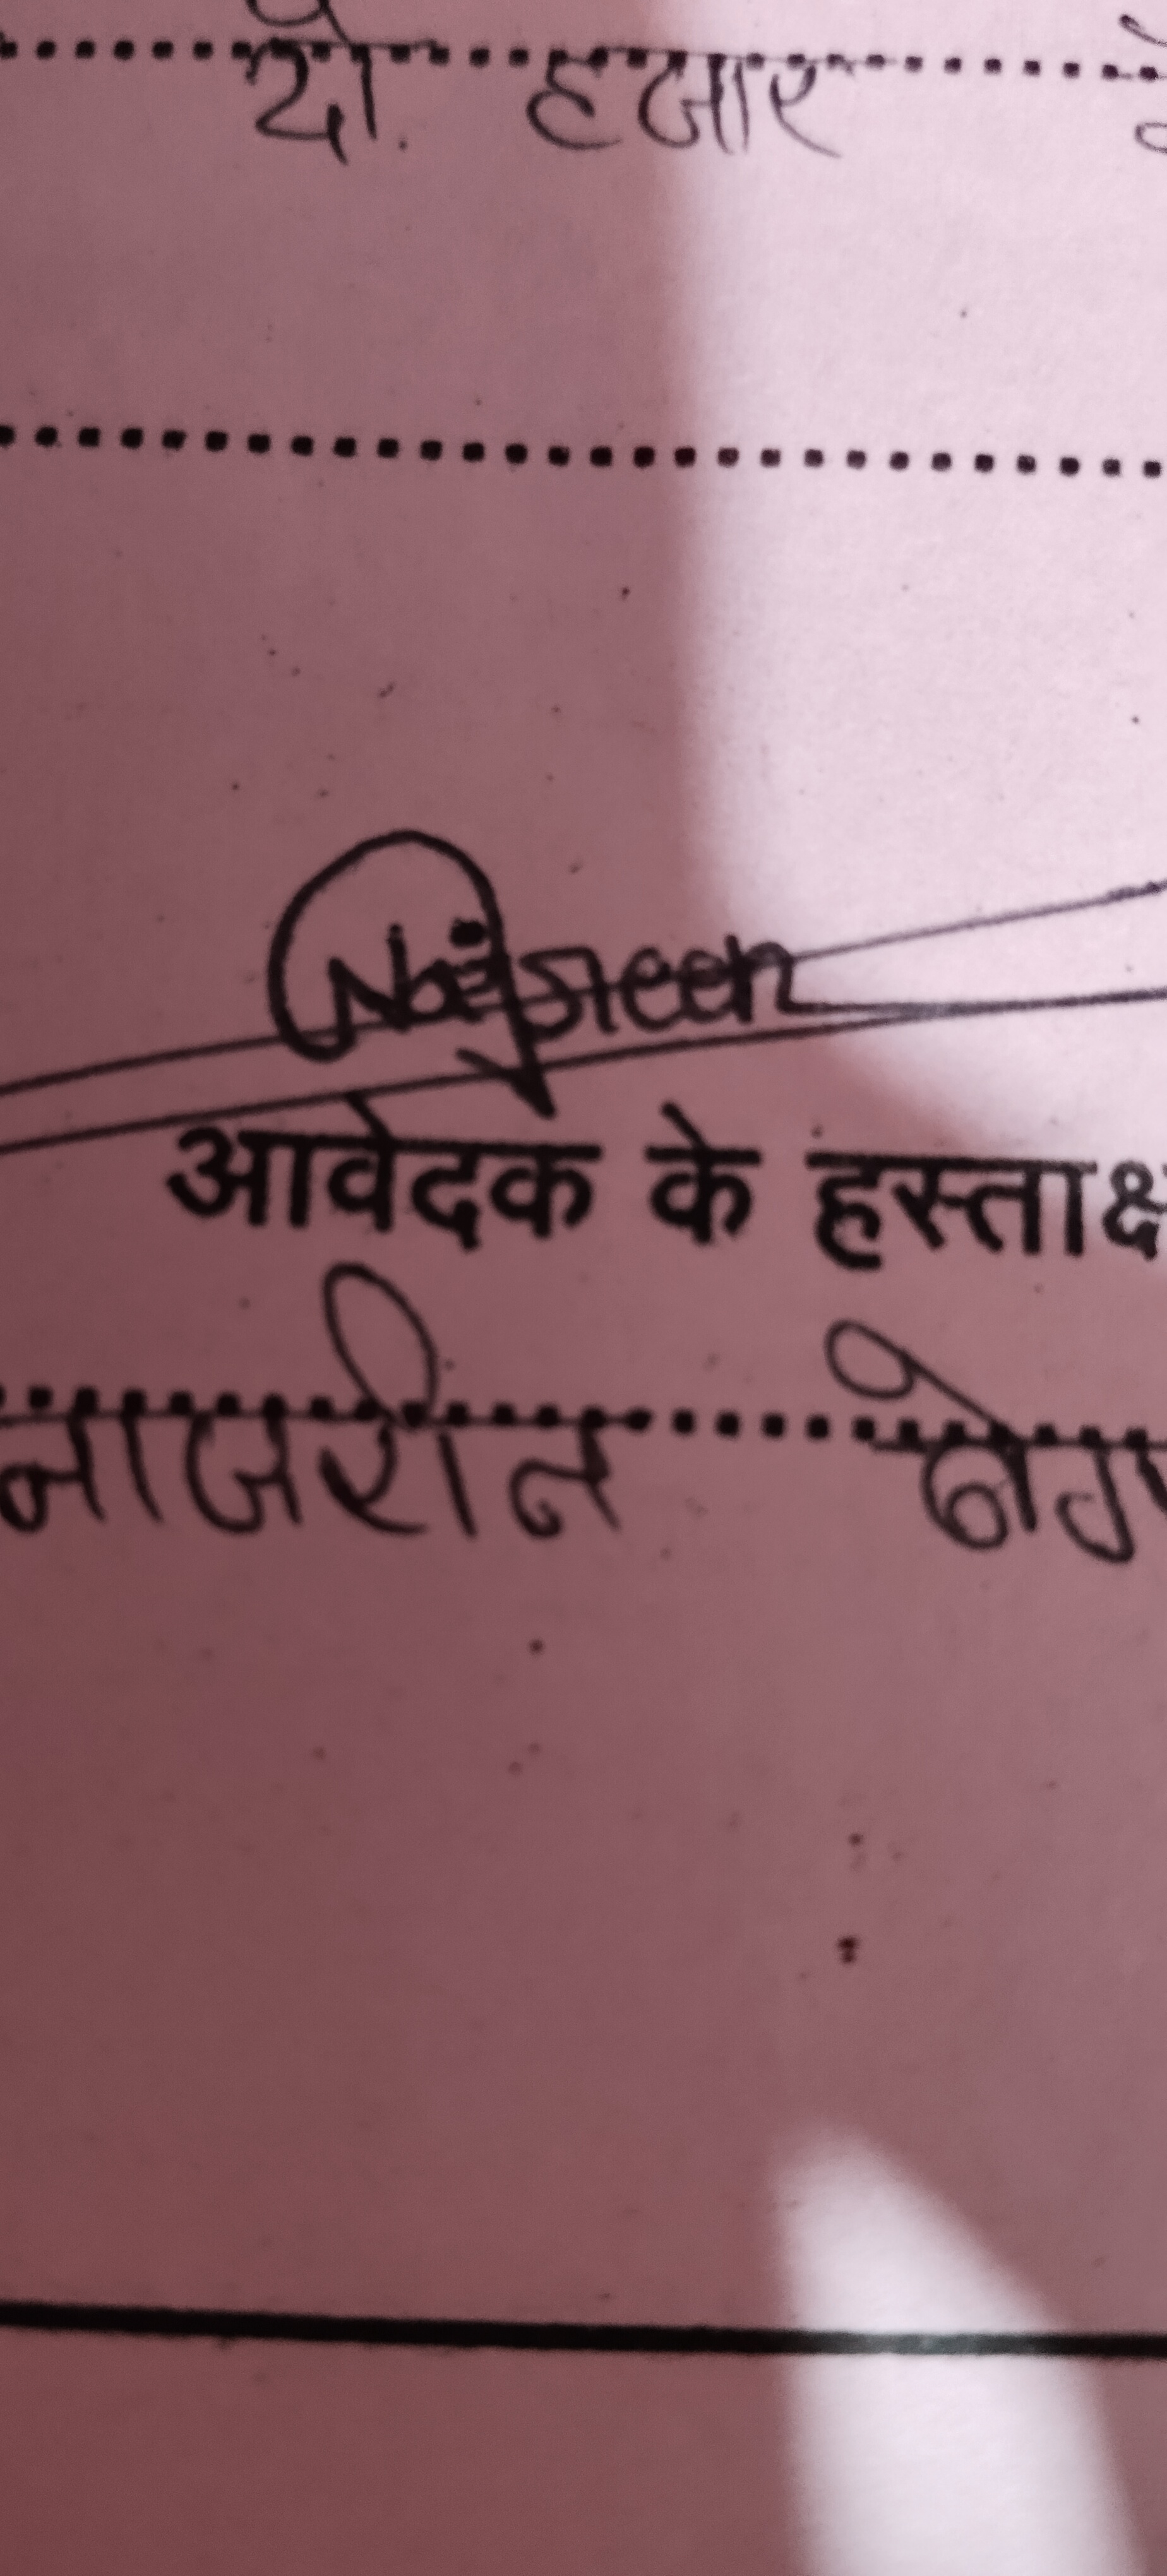 दो. हजार
Najreen
आवेदक के हस्ताक्ष
नाजरीन बेग